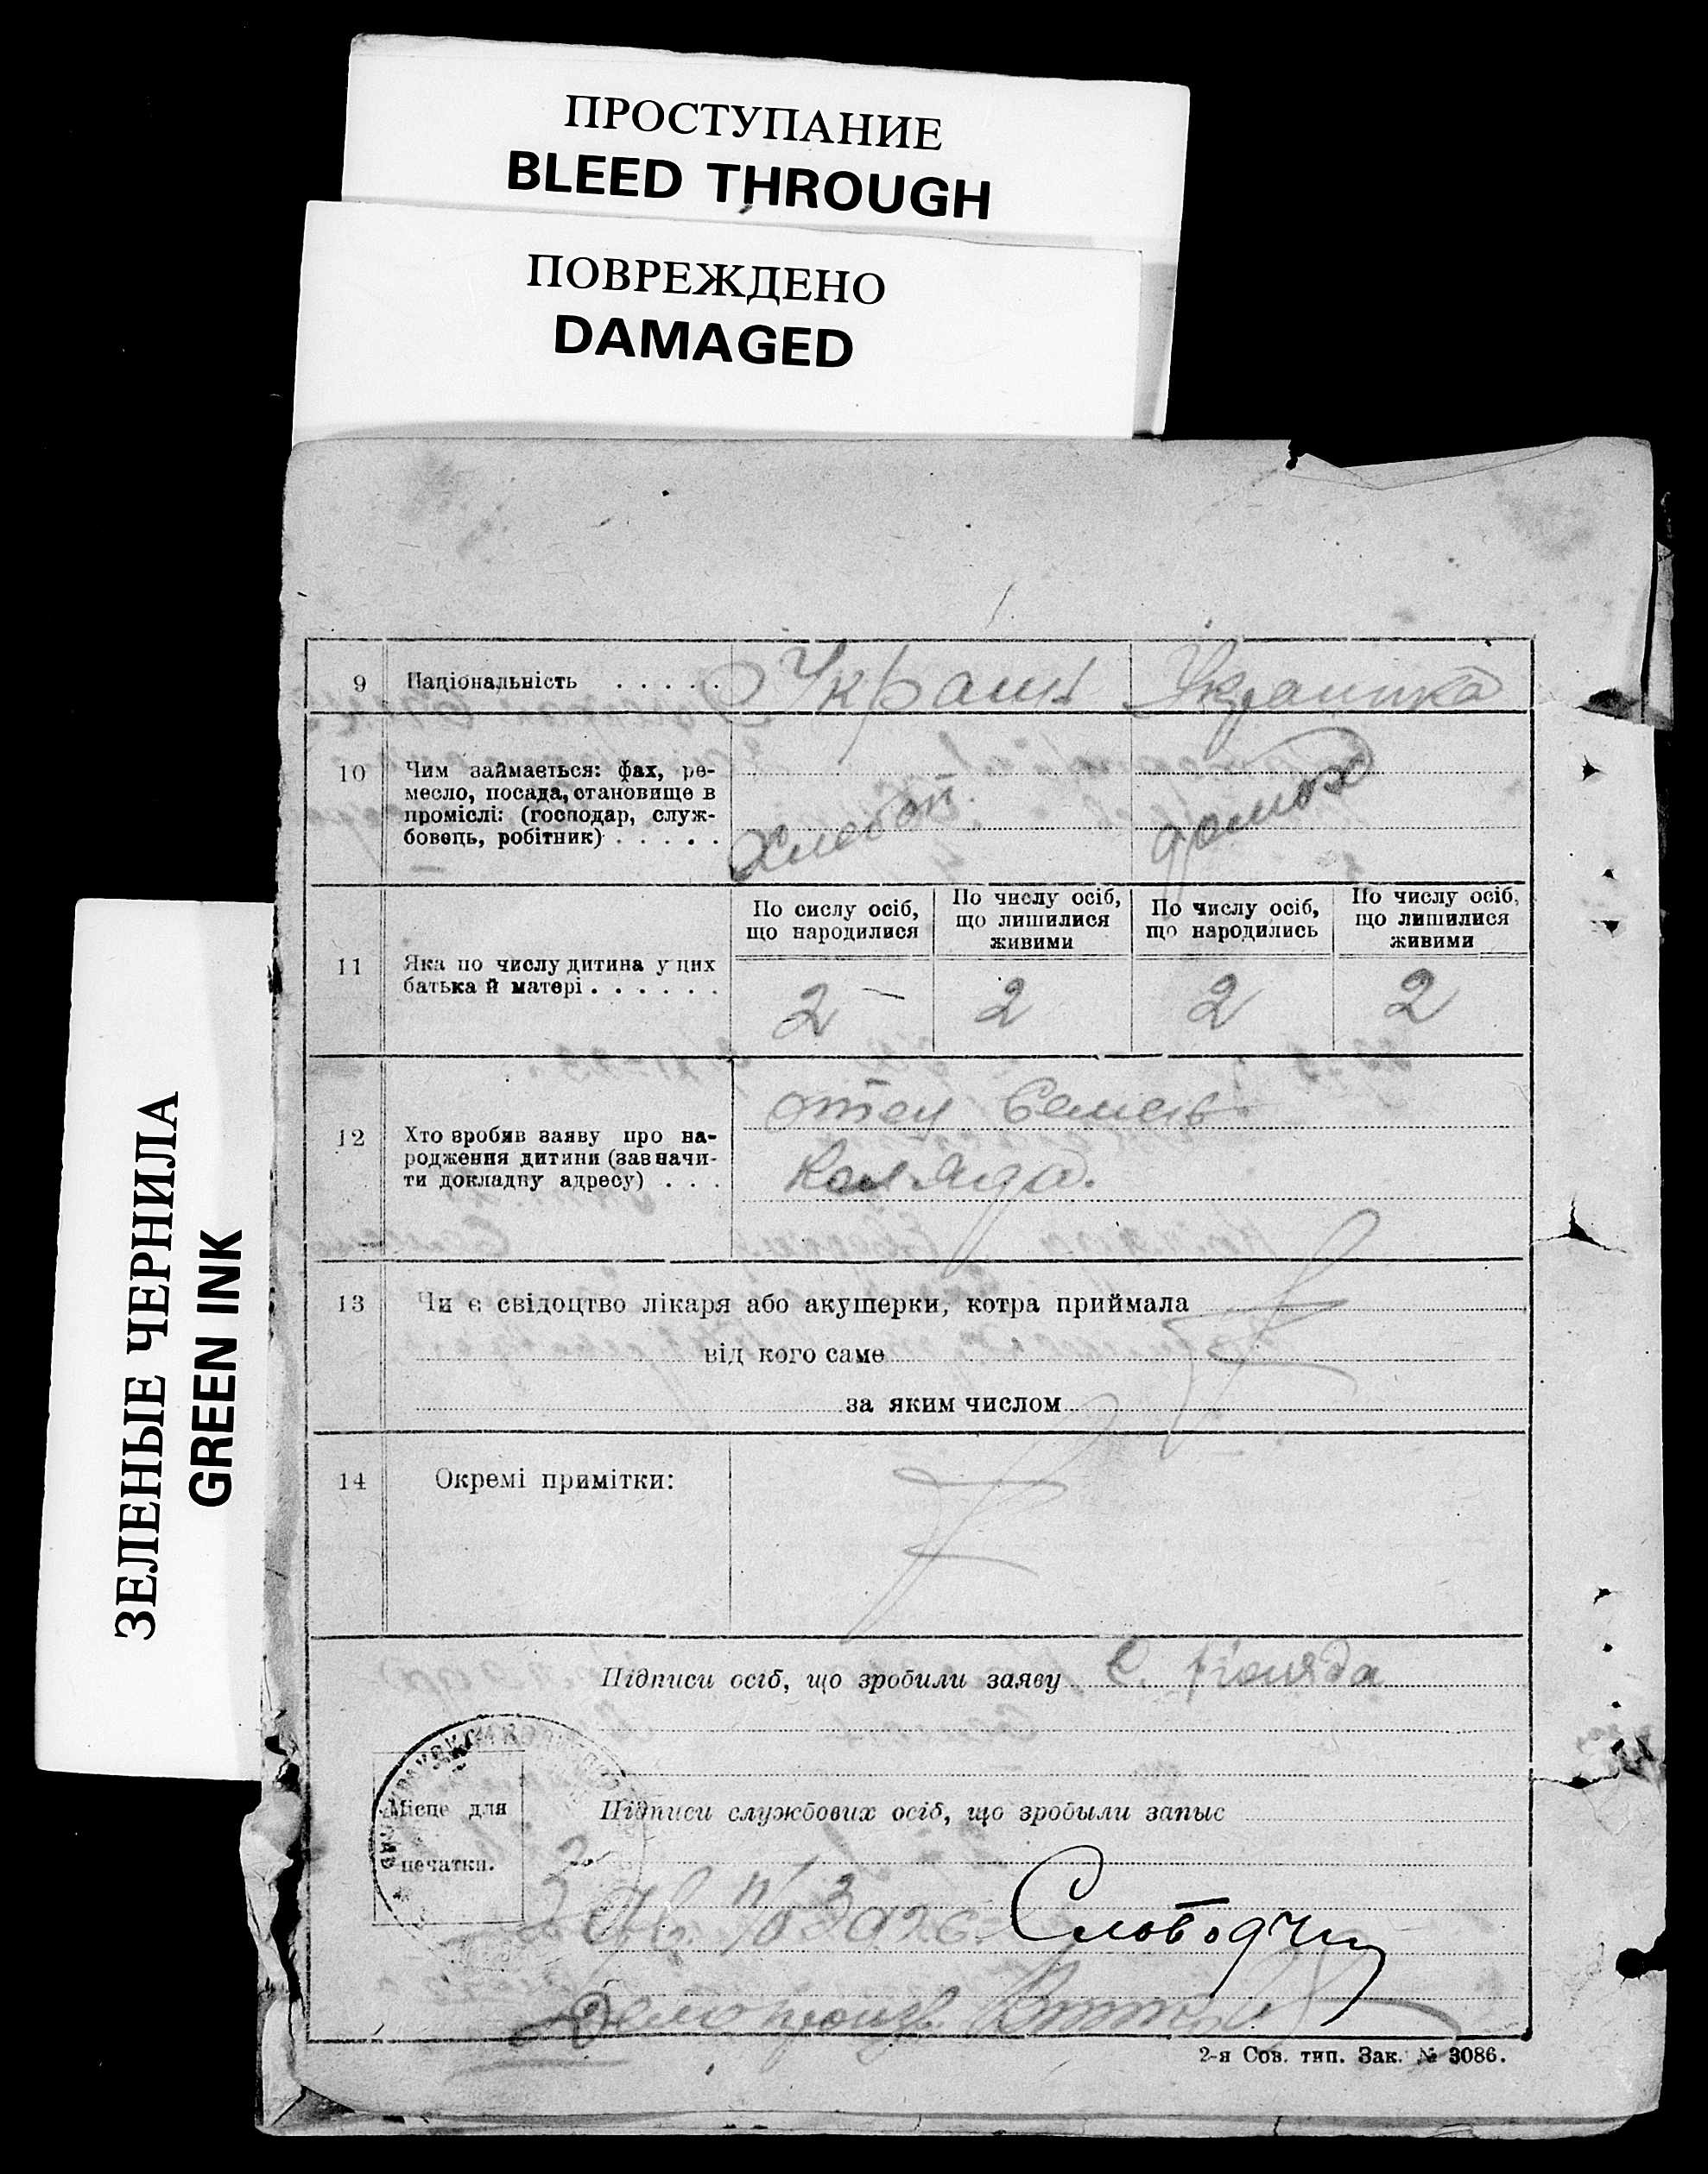 ПРОСТУПАНИЕ
BLEED THROUGH
ПОВРЕЖДЕНО
DAMAGED
ЗЕЛЕНЫЕ ЧЕРНИЛА
GREEN INK
9 Національність . . . . . Украин Украинка
10 Чим займається: фах, ре-
месло, посада, становище в
проміслі: (господар, служ-
бовець, робітник) . . . . .
Хлебоп. домохо
11 Яка по числу дитина у цих
батька й матері . . . . . .
По сислу осіб,
що народилися
По числу осіб,
що лишилися
живими
По числу осіб,
що народились
По числу осіб,
що лишилися
живими
2 2 2 2
12 Хто зробив заяву про на-
родження дитини (зазначи-
ти докладну адресу) . . .
отец Семен
Коляда.
13 Чи є свідоцтво лікаря або акушерки, котра приймала
від кого саме
за яким числом
14 Окремі примітки:
Підписи осіб, що зробили заяву С. Коляда
Місце для
печатки.
Підписи службових осіб, що зробыли запыс
Слободчик
Делопроизв.
2-я Сов. тип. Зак. № 3086.